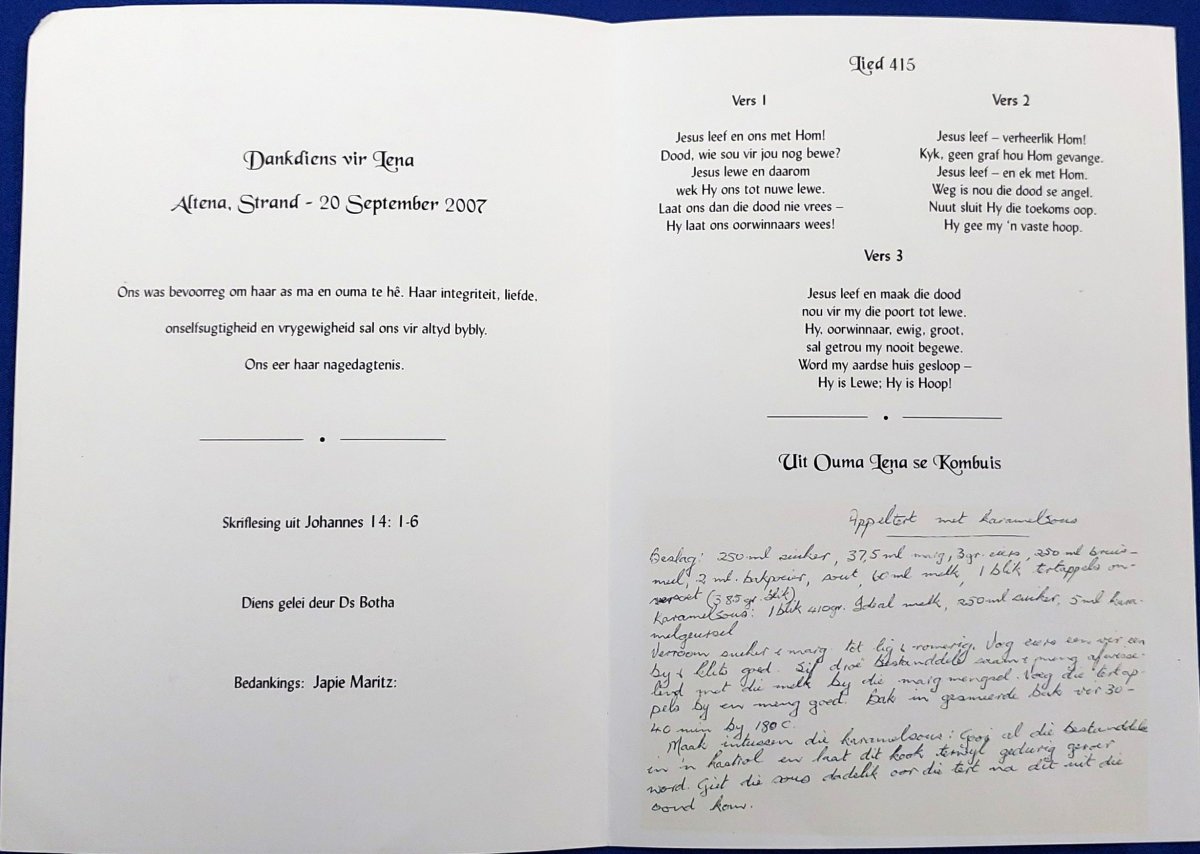 Dankdiens vir Lena
Altena, Strand - 20 September 2007
Ons was bevoorreg om haar as ma en ouma te hê. Haar integriteit, liefde,
onselfsugtigheid en vrygewigheid sal ons vir altyd bybly.
Ons eer haar nagedagtenis.
Skriflesing uit Johannes 14: 1-6
Diens gelei deur Ds Botha
Bedankings: Japie Maritz:
Lied 415
Vers 1
Jesus leef en ons met Hom!
Dood, wie sou vir jou nog bewe?
Jesus lewe en daarom
wek Hy ons tot nuwe lewe.
Laat ons dan die dood nie vrees –
Hy laat ons oorwinnaars wees!
Vers 2
Jesus leef – verheerlik Hom!
Kyk, geen graf hou Hom gevange.
Jesus leef – en ek met Hom.
Weg is nou die dood se angel.
Nuut sluit Hy die toekoms oop.
Hy gee my 'n vaste hoop.
Vers 3
Jesus leef en maak die dood
nou vir my die poort tot lewe.
Hy, oorwinnaar, ewig, groot,
sal getrou my nooit begewe.
Word my aardse huis gesloop –
Hy is Lewe; Hy is Hoop!
Uit Ouma Lena se Kombuis
Appeltert met karamelsous
Beslag: 250 ml suiker, 37,5 ml marg, 3 gr. eiers, 250 ml bruis-
meel, 2 ml. bakpoeier, sout, 60 ml melk, 1 blik tertappels on-
versoet (385 gr blik)
Karamelsous: 1 blik 410gr. Ideal melk, 250 ml suiker, 5 ml kara-
melgeursel
Verroom suiker & marg. tot lig & romerig. Voeg eiers een vir een
by & klits goed. Sif droë bestanddele saam & meng afwisse-
lend met die melk by die marg mengsel. Voeg die tertap-
pels by en meng goed. Bak in gesmeerde bak vir 30-
40 min by 180 C.
Maak intussen die karamelsous: Gooi al die bestanddele
in 'n kastrol en laat dit kook terwyl gedurig geroer
word. Giet die sous dadelik oor die tert na dit uit die
oond kom.